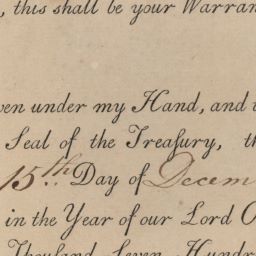 , this shall be your Warran
ven under my Hand, and
Seal of the Treaſury, th
15th Day of Decem
in the Year of our Lord O
Thouſand Seven Hundr